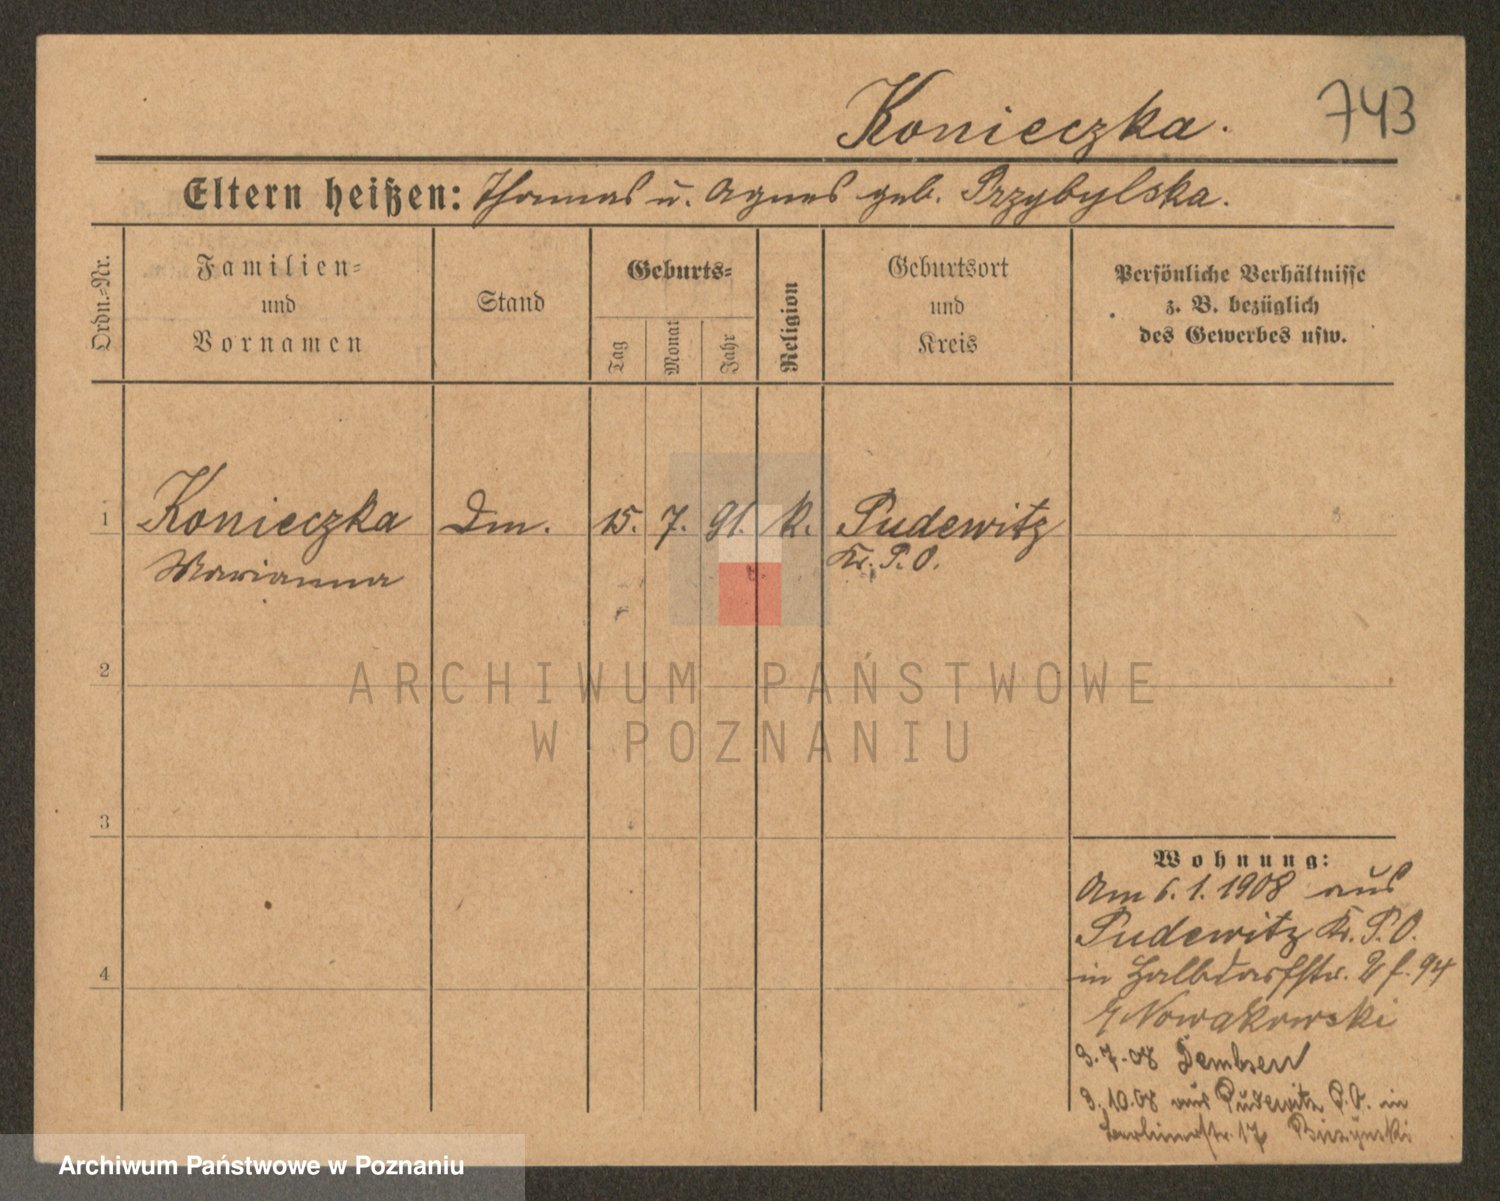 Konieczka.
743
Eltern heißen: Thomas u. Agnes geb. Przybylska.
Ordn.-Nr.
Familien-
und
Vornamen
Stand
Geburts-
Tag
Monat
Jahr
Religion
Geburtsort
und
Kreis
Persönliche Verhältnisse
z. B. bezüglich
des Gewerbes usw.
1 Konieczka Dm. 15. 7. 91. k. Pudewitz
Marianna Kr. P. O.
2
3
4
Wohnung:
Am 6.1.1908 aus
Pudewitz Kr. P. O.
in Halbdorfstr. 94
Nowakowski
3.7.08 Dembsen
3.10.08 aus Pudewitz P.O. in
17
ARCHIWUM PAŃSTWOWE
W POZNANIU
Archiwum Państwowe w Poznaniu